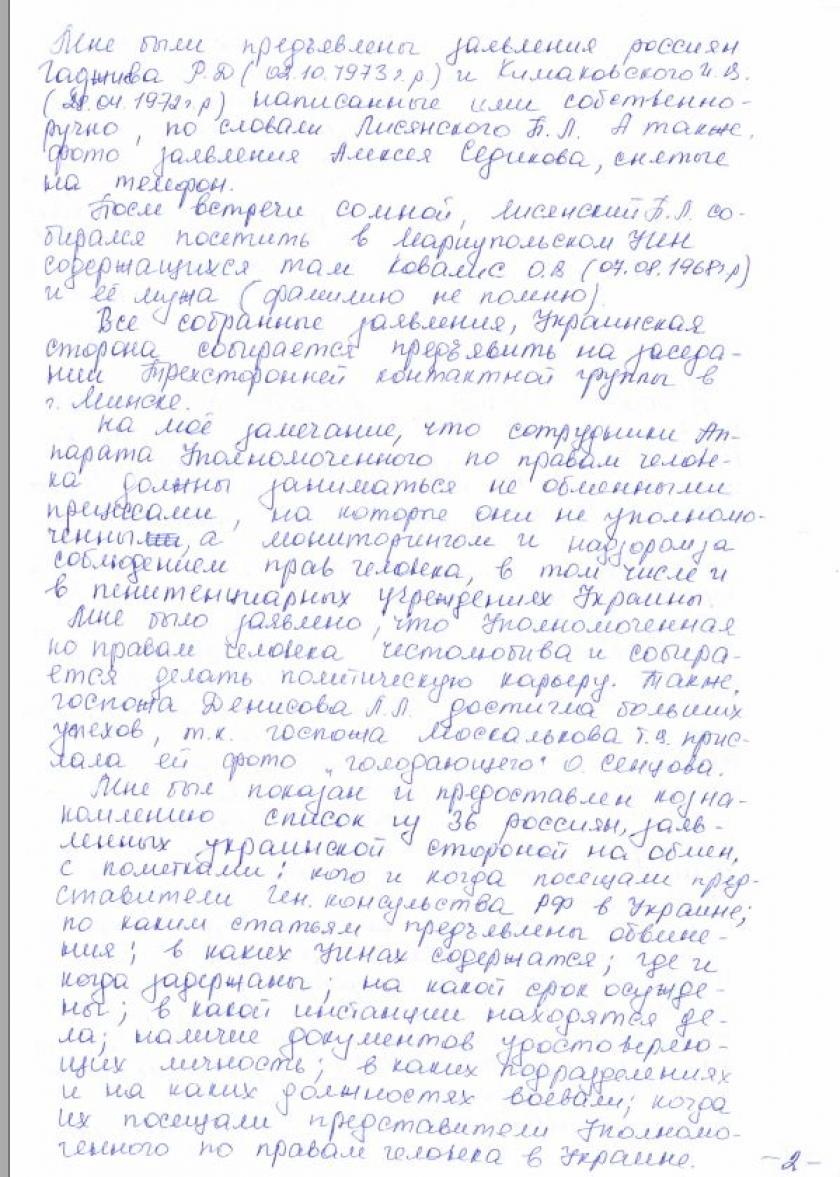 Мне были предъявлены заявления россиян
Гаджиева Р.Д (02.10.1973г.р) и Кимаковского И.В.
(28.04.1972г.р) написанные ими собственно-
ручно, по словам Лисянского Б.Л. А также,
фото заявления Алексея Седикова, снятые
на телефон.
После встречи сомной, Лисянский Б.Л. со-
бирался посетить в Мариупольском УИН
содержащихся там Ковалис О.В (07.08.1968г.р)
и её мужа (фамилию не помню).
Все собранные заявления, Украинская
сторона собирается предъявить на заседа-
нии Трехсторонней контактной группы в
г. Минске.
На моё замечание, что сотрудники Ап-
парата Уполномоченного по правам челове-
ка должны заниматься не обменными
процессами, на которые они не уполномо-
ченны, а мониторингом и надзором за
соблюдением прав человека, в том числе и
в пенитенциарных учреждениях Украины.
Мне было заявлено, что Уполномоченная
по правам человека честолюбива и собира-
ется делать политическую карьеру. Также,
госпожа Денисова Л.Л. достигла больших
успехов, т.к. госпожа Москалькова Т.Н. прис-
лала ей фото „голодающего" О. Сенцова.
Мне был показан и предоставлен к озна-
комлению список из 36 россиян, заяв-
ленных украинской стороной на обмен,
с пометками: кого и когда посещали пред-
ставители Ген. консульства РФ в Украине;
по каким статьям предъявлены обвине-
ния; в каких УИНах содержатся; где и
когда задержаны; на какой срок осужде-
ны; в какой инстанции находятся де-
ла; наличие документов удостоверяю-
щих личность; в каких подразделениях
и на каких должностях воевали; когда
их посещали представители Уполномо-
ченного по правам человека в Украине.
-2-